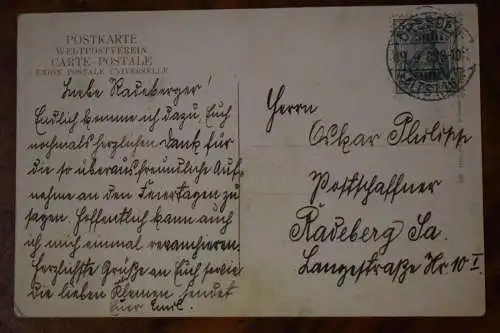 POSTKARTE
WELTPOSTVEREIN
CARTE-POSTALE
UNION POSTALE UNIVERSELLE
Liebe Radeberger!
Endlich komme ich dazu, Euch
nochmals herzlichen Dank für
die so überaus freundliche Auf-
nahme an den Feiertagen zu
sagen. Hoffentlich kann auch
ich mich einmal revanchieren.
Herzlichste Grüße an Euch sowie
die lieben Kleinen sendet
Euer Emil.
DRESDEN
ALTSTADT
Herrn
Oskar
Postschaffner
Radeberg Sa.
Langestraße Nr 10 I